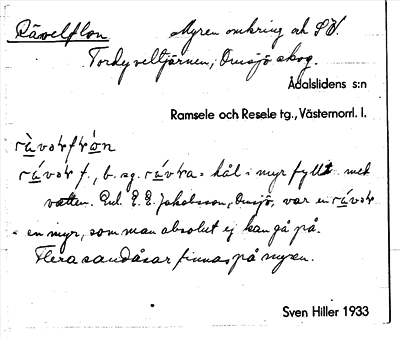 Rävelflon Myren omkring och S. V.
Tordyveltjärnen, Omsjö skog.
Ådalslidens s:n
Ramsele och Resele tg., Västernorrl. l.
f., b. sg. = hål i myr fyllt med
vatten. Enl. E. E. Jakobsson, Omsjö, var en
= en myr, som man absolut ej kan gå på.
Flera sandåsar finnas på myren.
Sven Hiller 1933